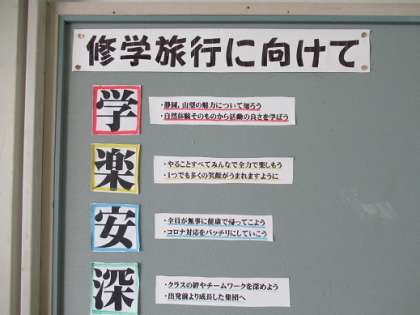 修学旅行に向けて
学
・静岡、山梨の魅力について知ろう
・自然体験そのものから活動の良さを学ぼう
楽
・やることすべてみんなで全力で楽しもう
・1つでも多くの笑顔がうまれますように
安
・全員が無事に健康で帰ってこよう
・コロナ対応をバッチリにしていこう
深
・クラスの絆やチームワークを深めよう
・出発前より成長した集団へ